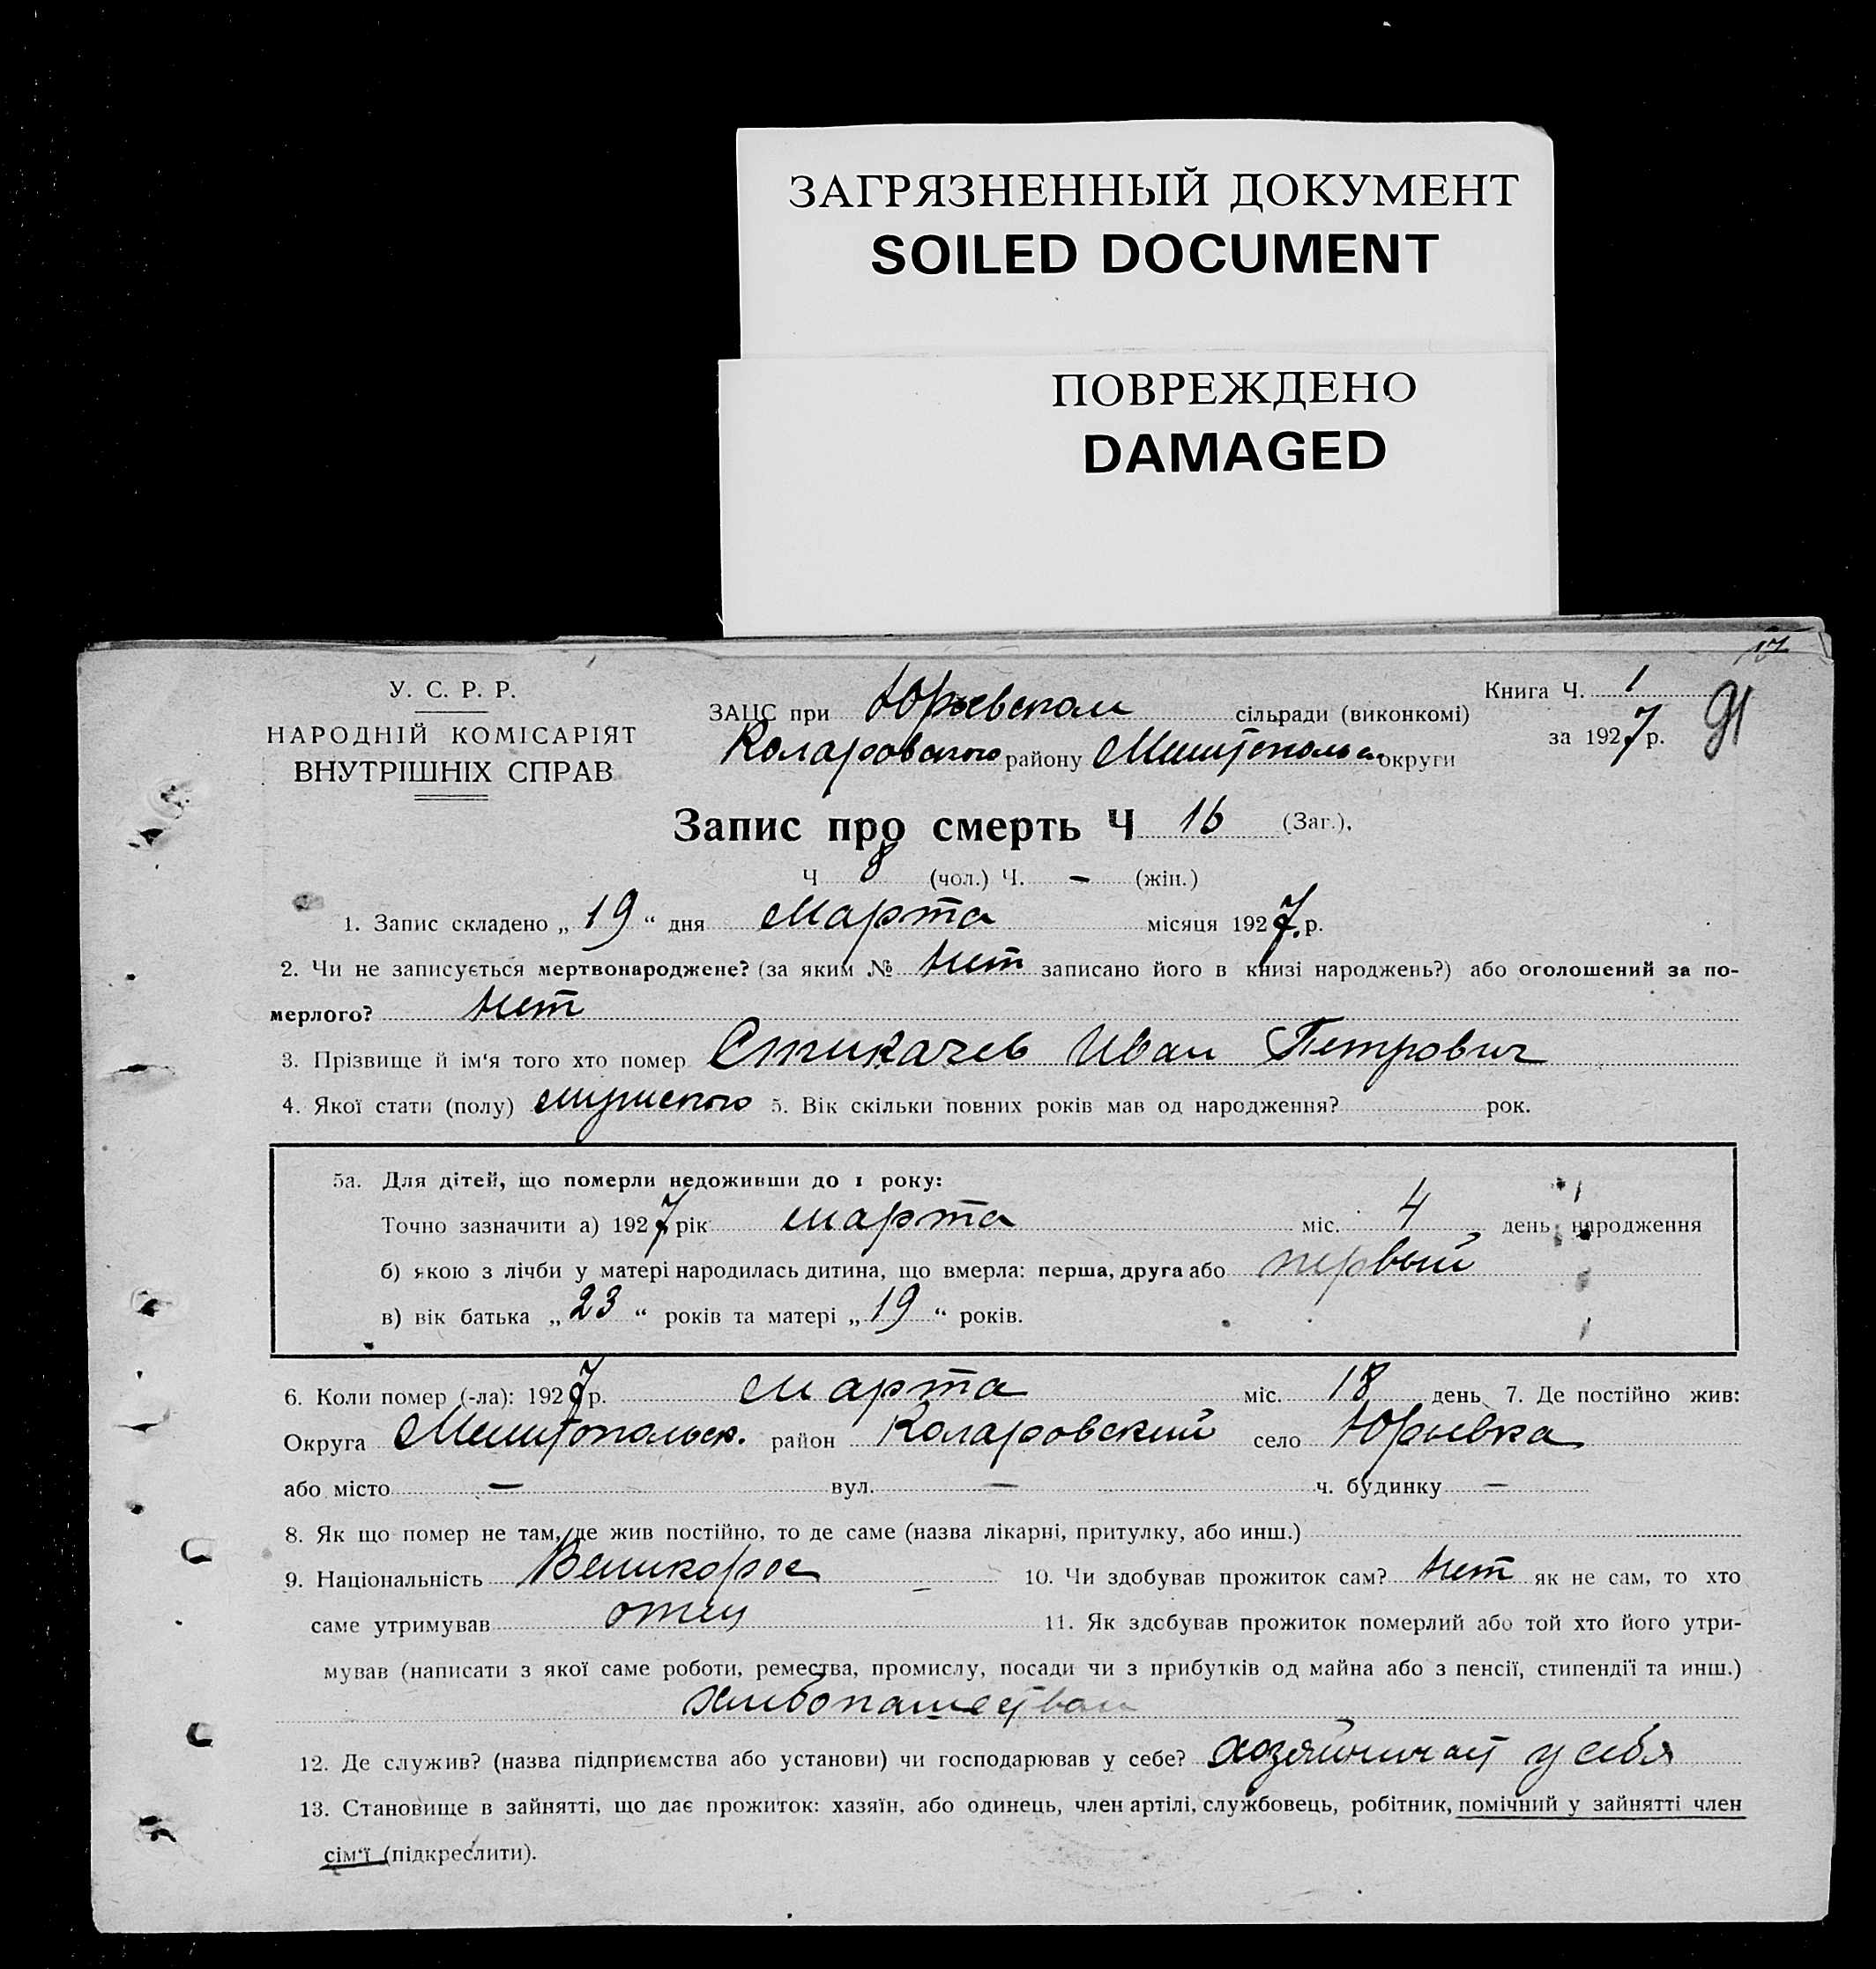 ЗАГРЯЗНЕННЫЙ ДОКУМЕНТ
SOILED DOCUMENT
ПОВРЕЖДЕНО
DAMAGED
У. С. Р. Р.
НАРОДНІЙ КОМІСАРІЯТ
ВНУТРІШНІХ СПРАВ
ЗАЦС при Юрьевском сільради (виконкомі)
Коларовского району Мелитопольск округи
Книга Ч. 1
за 1927 р.
91
Запис про смерть Ч 16 (Заг.),
Ч 8 (чол.) Ч. — (жін.)
1. Запис складено „ 19 “ дня Марта місяця 1927 р.
2. Чи не записується мертвонароджене? (за яким № нет записано його в книзі народжень?) або оголошений за по-
мерлого? нет
3. Прізвище й ім‘я того хто помер Стикачев Иван Петрович
4. Якої стати (полу) мужского 5. Вік скільки повних років мав од народження? рок.
5а. Для дітей, що померли недоживши до 1 року:
Точно зазначити а) 1927 рік марта міс. 4 день народження
б) якою з лічби у матері народилась дитина, що вмерла: перша, друга або первый
в) вік батька „ 23 “ років та матері „ 19 “ років.
6. Коли помер (-ла): 1927 р. марта міс. 18 день 7. Де постійно жив:
Округа Мелитопольск. район Коларовский село Юрьевка
або місто — вул. — ч. будинку —
8. Як що помер не там, де жив постійно, то де саме (назва лікарні, притулку, або инш.)
9. Національність Великорос 10. Чи здобував прожиток сам? нет як не сам, то хто
саме утримував отец 11. Як здобував прожиток померлий або той хто його утри-
мував (написати з якої саме роботи, ремества, промислу, посади чи з прибутків од майна або з пенсії, стипендії та инш.)
хлебопашеством
12. Де служив? (назва підприємства або установи) чи господарював у себе? хозяйничает у себя
13. Становище в зайнятті, що дає прожиток: хазяїн, або одинець, член артілі, службовець, робітник, помічний у зайнятті член
сім‘ї (підкреслити).